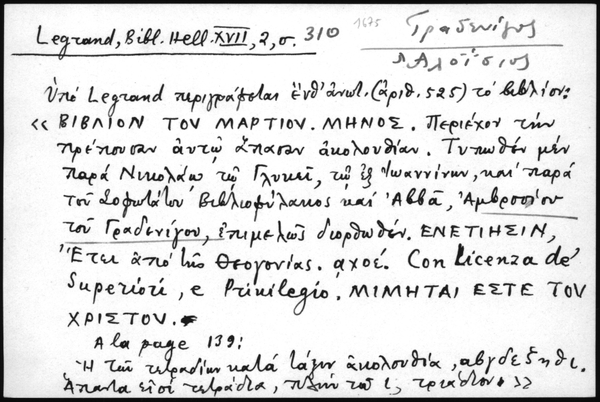 Legrand, Bibl. Hell. XVII, 2, σ. 310
1675
Γραδενίγος
Ἀλοΐσιος
Ὑπὸ Legrand περιγράφεται ἐνθ' ἀνωτ. (ἀριθ. 525) τὸ βιβλίον:
« ΒΙΒΛΙΟΝ ΤΟΥ ΜΑΡΤΙΟΥ. ΜΗΝΟΣ. Περιέχον τὴν
πρέπουσαν ἀυτῷ ἅπασαν ἀκολουθίαν. Τυπωθὲν μὲν
παρὰ Νικολάῳ τῷ Γλυκεῖ, τῷ ἐξ Ἰωαννίνων, καὶ παρὰ
τοῦ Σοφωτάτου Βιβλιοφύλακος καὶ Ἀββᾶ, Ἀμβροσίου
τοῦ Γραδενίγου, ἐπιμελῶς διορθωθέν. ΕΝΕΤΙΗΣΙΝ,
Ἔτει ἀπὸ τῆς Θεογονίας. αχοέ. Con Licenza de
Superiori, e Privilegio. ΜΙΜΗΤΑΙ ΕΣΤΕ ΤΟΥ
ΧΡΙΣΤΟΥ.
A la page 139:
Ἡ τῶν τετραδίων κατὰ τάξιν ἀκολουθία, αβγδεζηθι.
Ἅπαντα εἰσὶ τετράδια, πλὴν τοῦ ι, τριάδιον. »